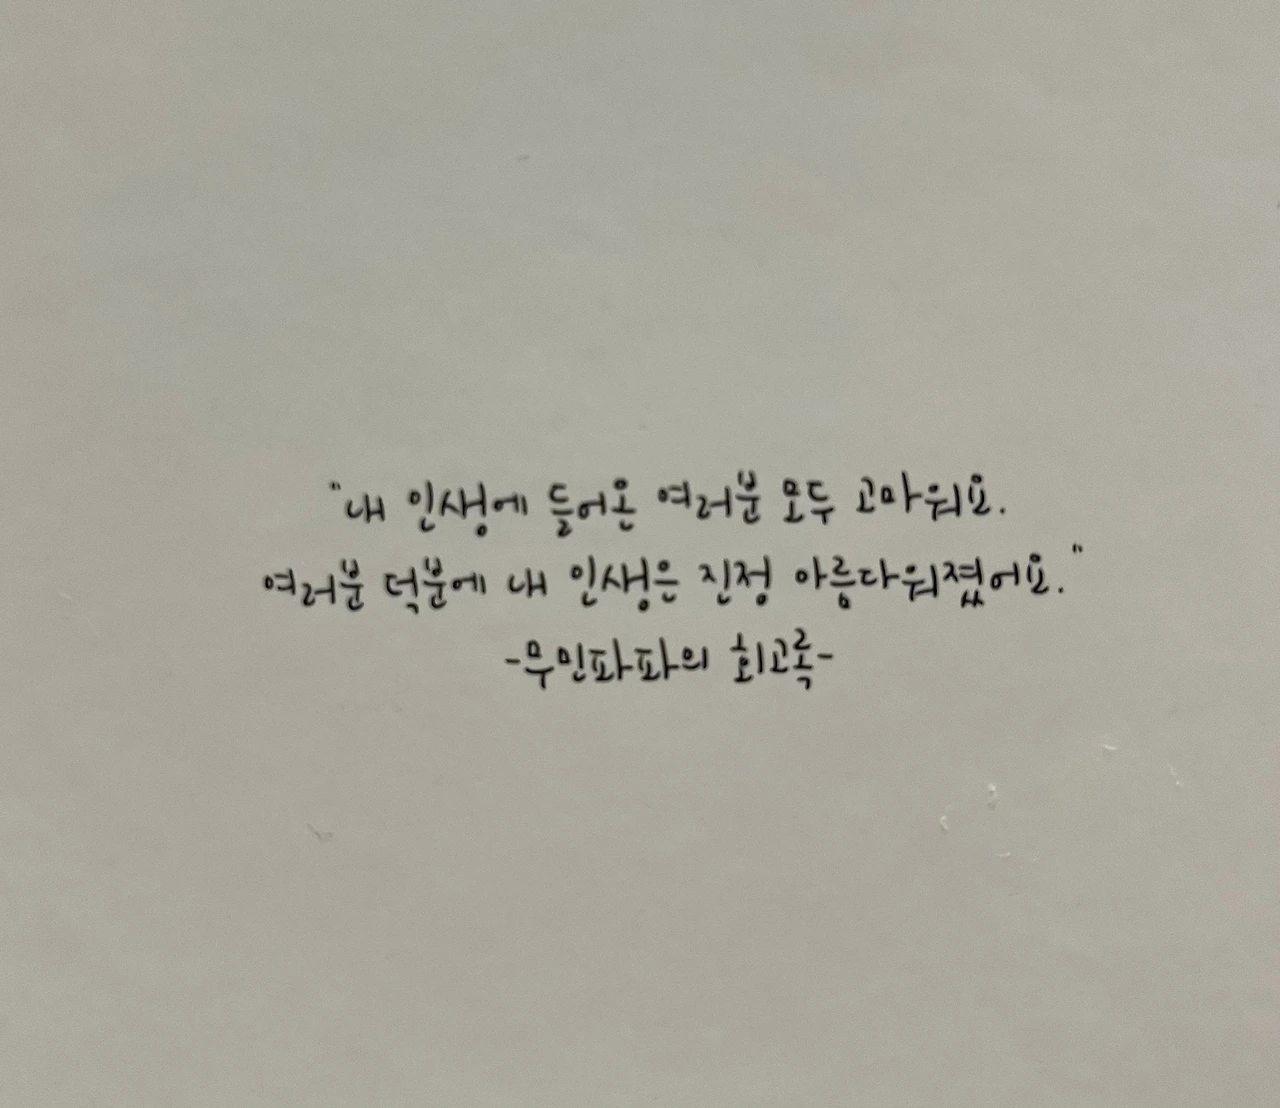 "내 인생에 들어온 여러분 모두 고마워요.
여러분 덕분에 내 인생은 진정 아름다워졌어요."
-무민파파의 회고록-